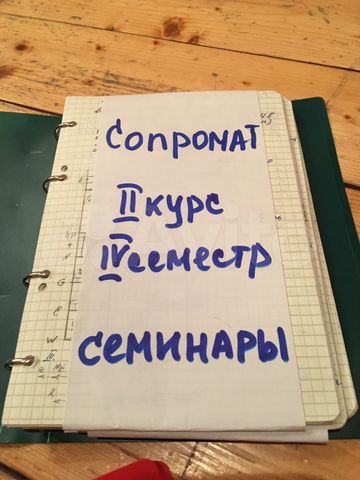 Сопромат
II курс
IV семестр
семинары